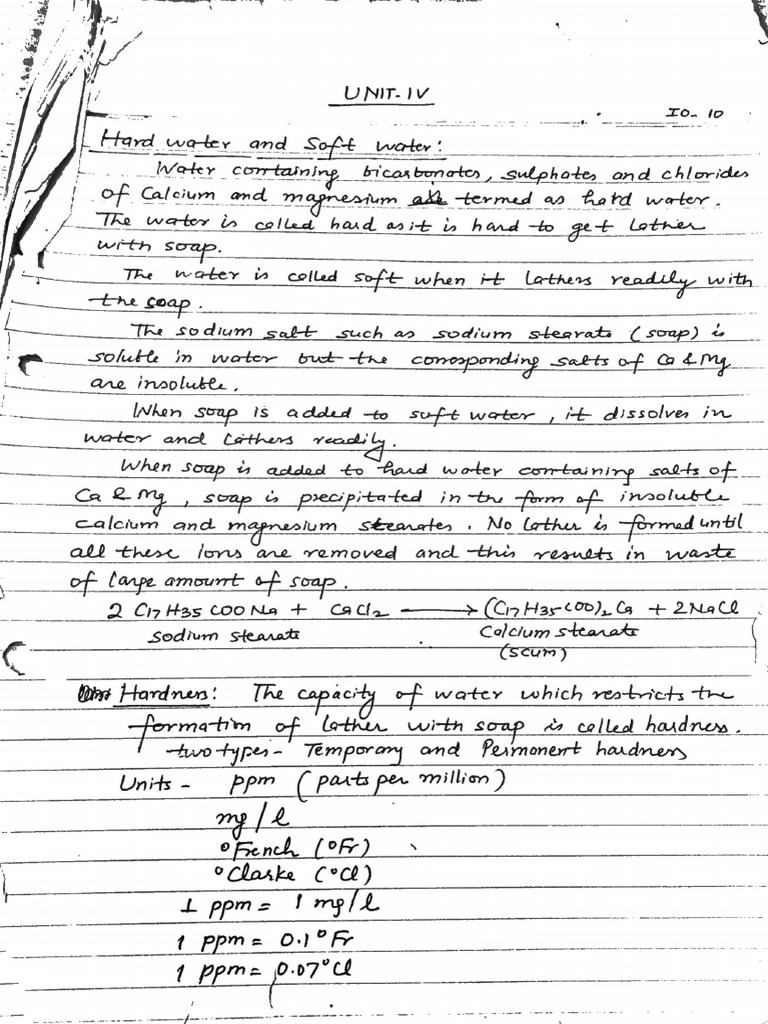 UNIT-IV
IO-10
Hard water and Soft water:
Water containing bicarbonates, sulphates and chlorides
of Calcium and magnesium are termed as hard water.
The water is called hard as it is hard to get lather
with soap.
The water is called soft when it lathers readily with
the soap.
The sodium salt such as sodium stearate (soap) is
soluble in water but the corresponding salts of Ca & Mg
are insoluble.
When soap is added to soft water, it dissolves in
water and lathers readily.
When soap is added to hard water containing salts of
Ca & Mg, soap is precipitated in the form of insoluble
calcium and magnesium stearates. No lather is formed until
all these ions are removed and this results in waste
of large amount of soap.
2 C17H35COONa + CaCl2 ⟶ (C17H35COO)2Ca + 2NaCl
sodium stearate Calcium stearate
(scum)
Hardness: The capacity of water which restricts the
formation of lather with soap is called hardness.
two types - Temporary and Permanent hardness
Units - ppm (parts per million)
mg/l
°French (°Fr)
°Clarke (°Cl)
1 ppm = 1 mg/l
1 ppm = 0.1°Fr
1 ppm = 0.07°Cl